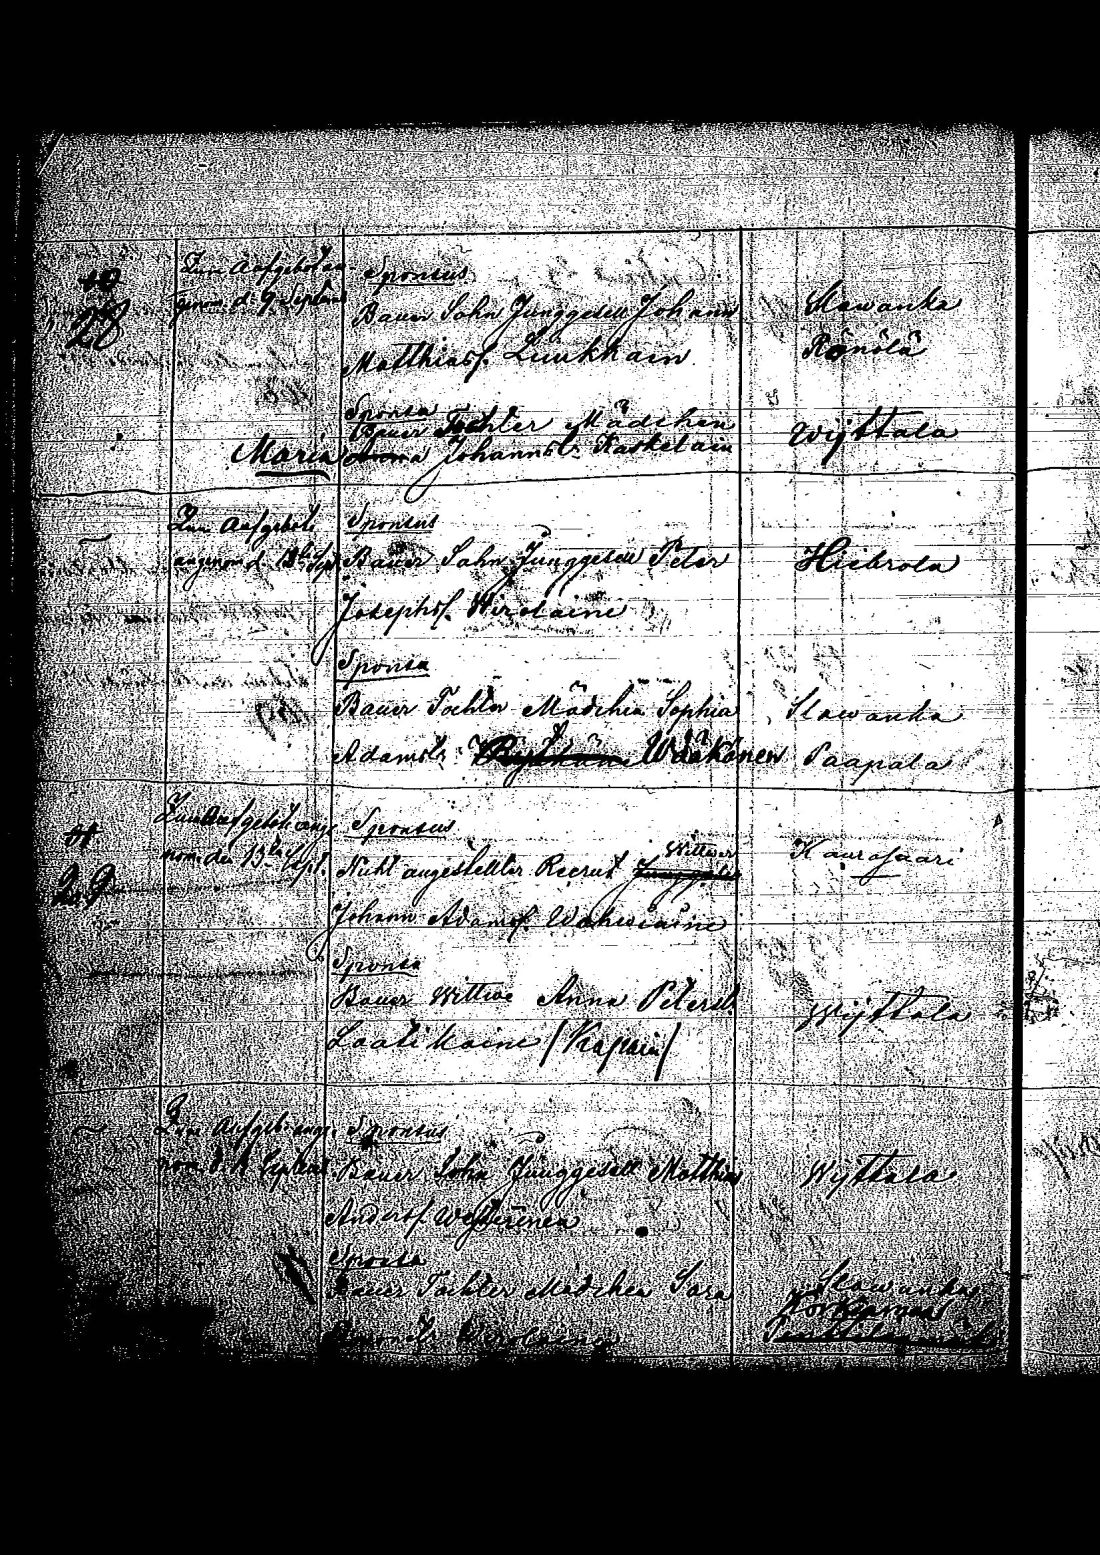 Zum Aufgebot an-
genom. d. 9 Septem
28
Sponsus
Bauer Sohn Junggesell Johann
Matthiasf. Luukkain
Slawanka
Rönölä
Sponsa
Bauer Tochter Mädchen
Maria Johannst. Kasketain
Wyttala
Zum Aufgebot
angenom d. Sept
Sponsus
Bauer Sohn Junggesell Peter
Josephsf. Wirolaine
Hiebrola
Sponsa
Bauer Tochter Mädchen Sophia
Adamst. Wääkönen
Slawanka
Paapala
29
Zum Aufgebot ange
nom. den 13ten Sept.
Sponsus
Nicht angestellter Recrut Wittwer
Johann Adamsf. Wahwiaine
Kaurasaari
Sponsa
Bauer Wittwe Anna Peterst.
Laatikaine
Wyttala
Zum Aufgeb. ange-
nom d. Septem
Sponsus
Bauer Sohn Junggesell Matthias
Andersf.
Wyttala
Sponsa
Bauer Tochter Mädchen Sara
Simonst. Wirolaine
Slawanka